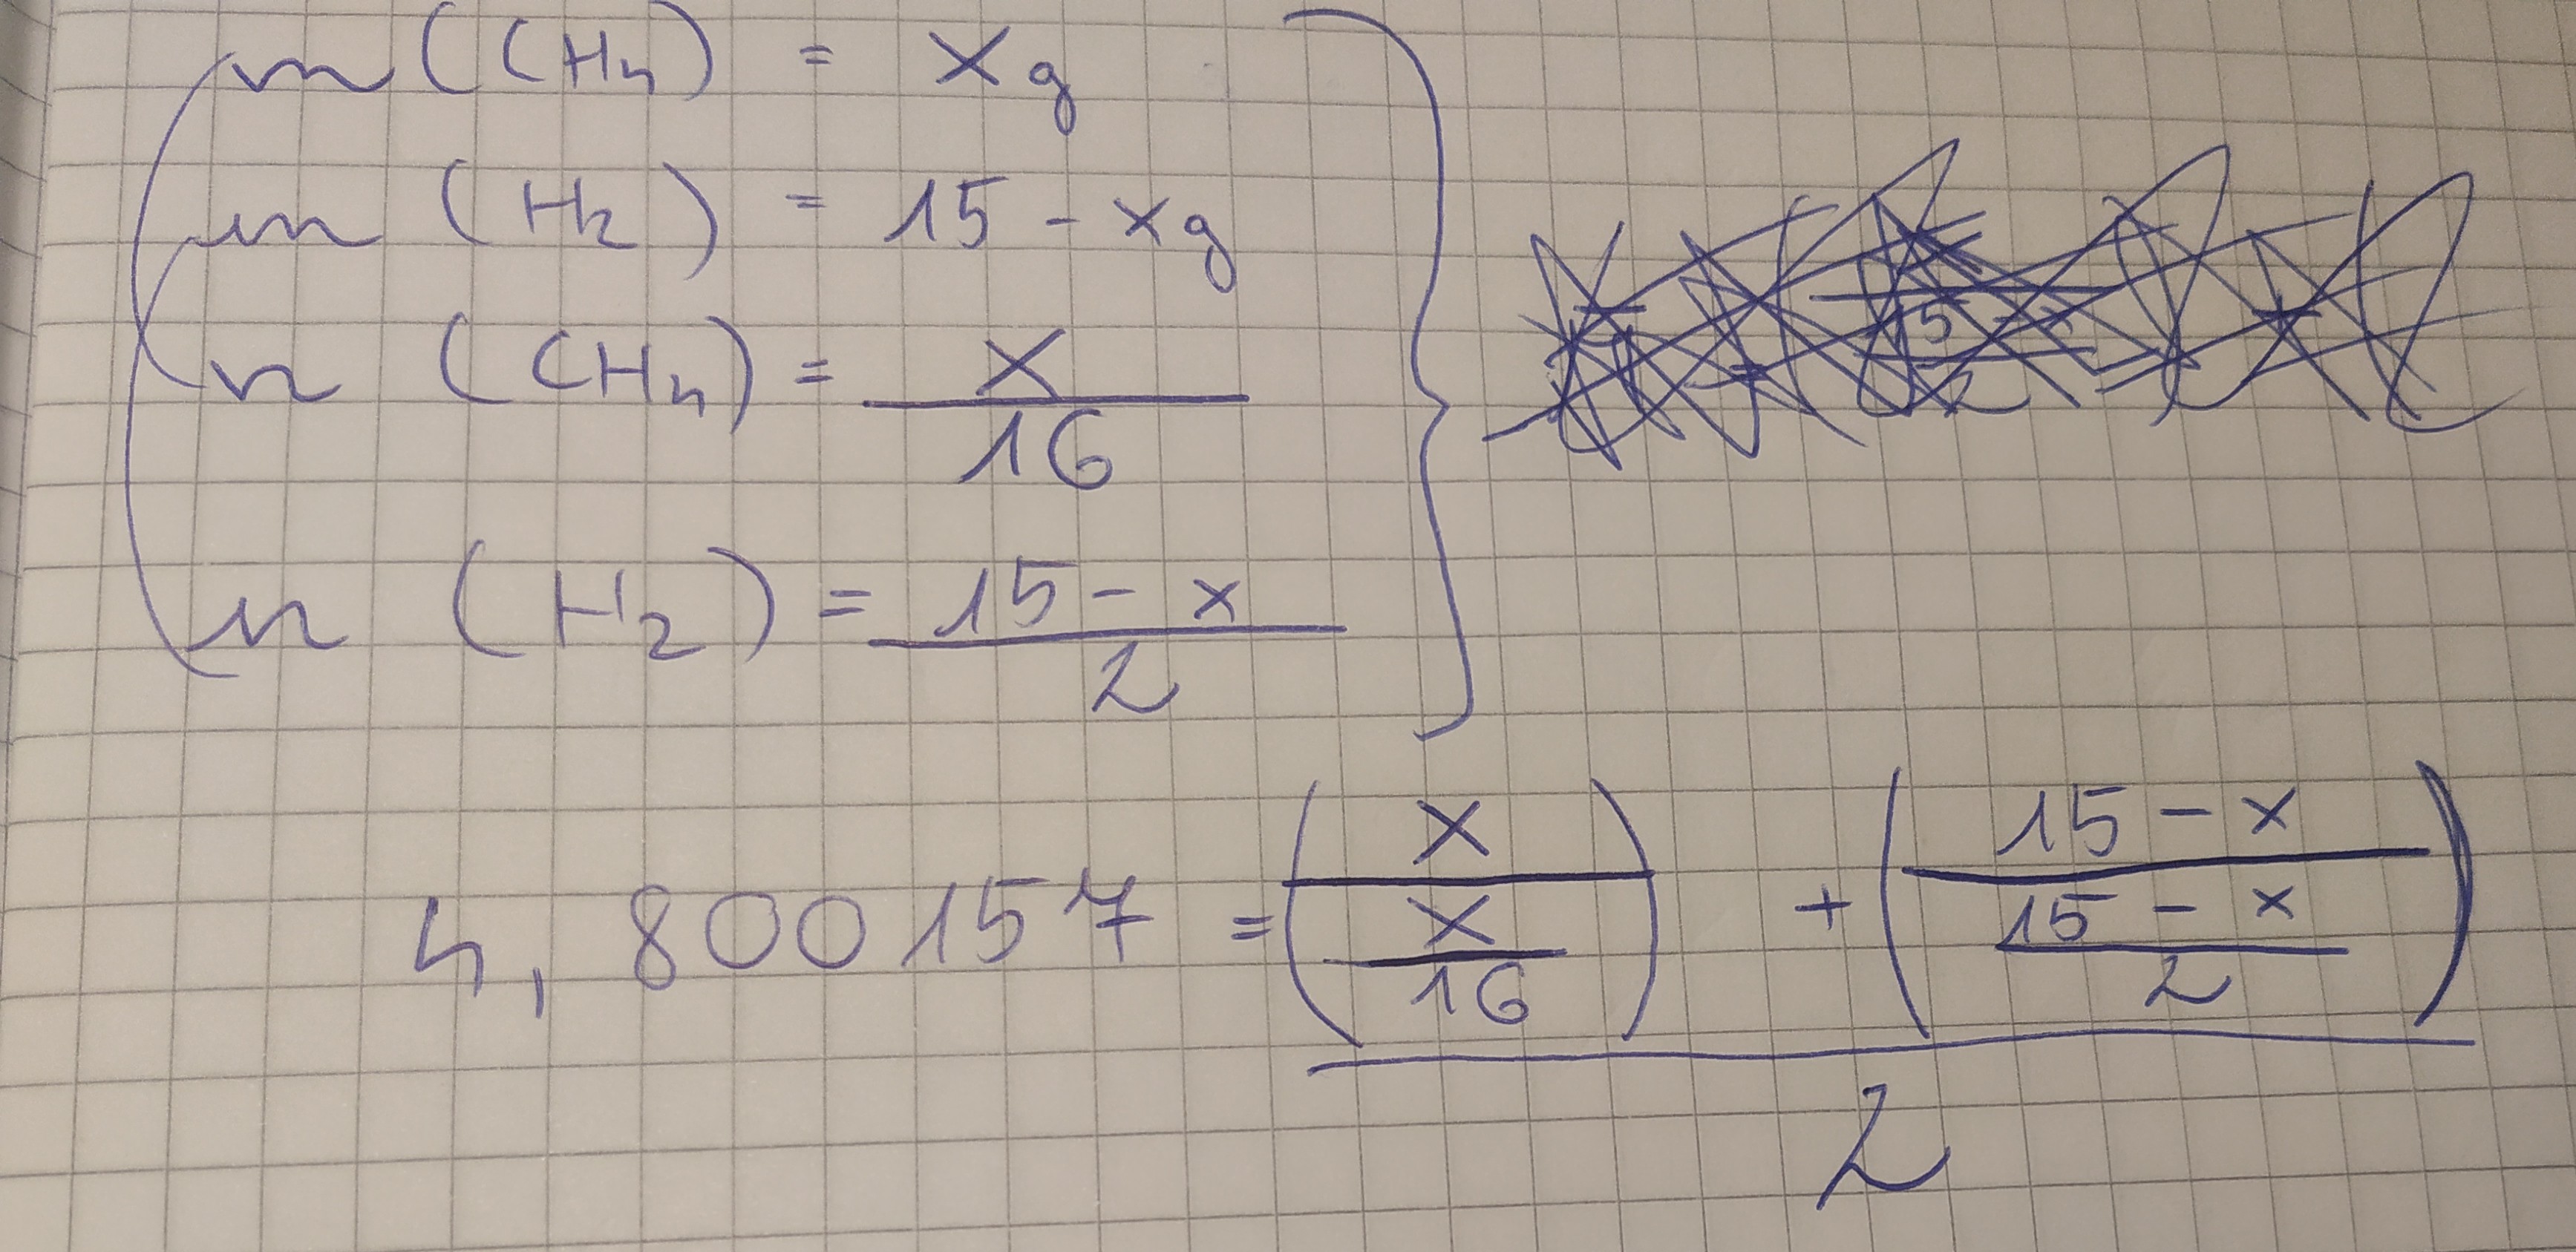 m (CH4) = x g
m (H2) = 15 - x g
n (CH4) = x / 16
n (H2) = 15 - x / 2
4,800157 = ((x / (x / 16)) + ((15 - x) / ((15 - x) / 2))) / 2